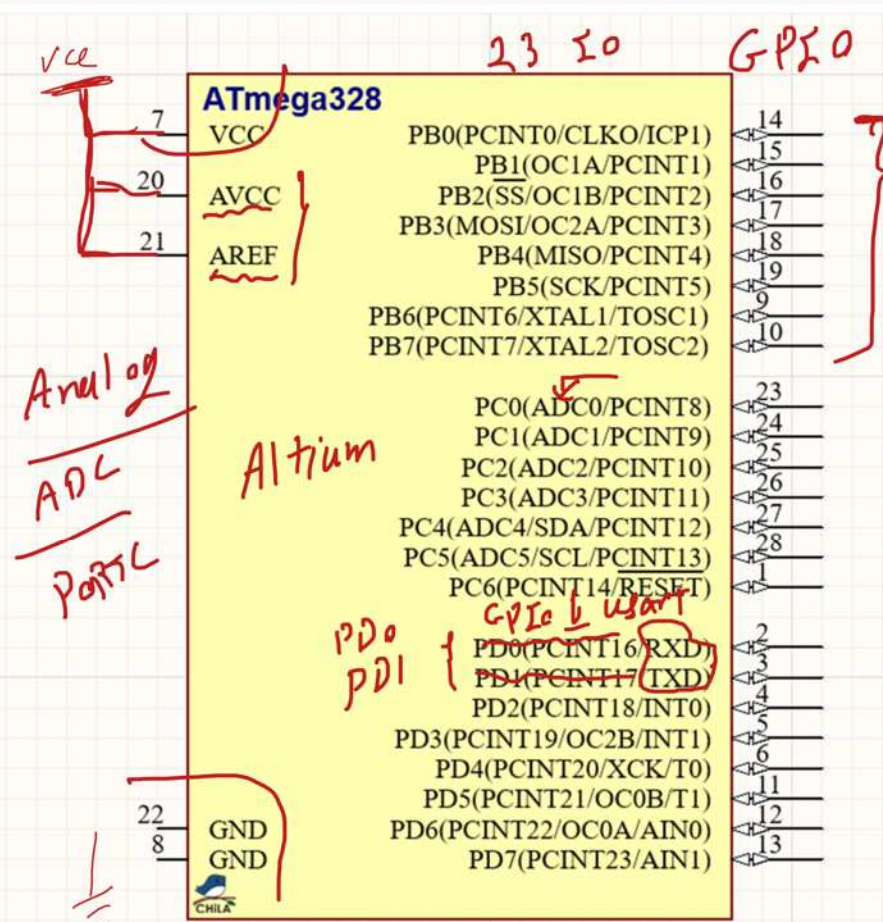 vcc
23 IO
GPIO
ATmega328
7 VCC
20 AVCC
21 AREF
PB0(PCINT0/CLKO/ICP1) 14
PB1(OC1A/PCINT1) 15
PB2(SS/OC1B/PCINT2) 16
PB3(MOSI/OC2A/PCINT3) 17
PB4(MISO/PCINT4) 18
PB5(SCK/PCINT5) 19
PB6(PCINT6/XTAL1/TOSC1) 9
PB7(PCINT7/XTAL2/TOSC2) 10
Analog
ADC
PortC
Altium
PC0(ADC0/PCINT8) 23
PC1(ADC1/PCINT9) 24
PC2(ADC2/PCINT10) 25
PC3(ADC3/PCINT11) 26
PC4(ADC4/SDA/PCINT12) 27
PC5(ADC5/SCL/PCINT13) 28
PC6(PCINT14/RESET) 1
GPIo usart
PD0
PD1
PD0(PCINT16/RXD) 2
PD1(PCINT17/TXD) 3
PD2(PCINT18/INT0) 4
PD3(PCINT19/OC2B/INT1) 5
PD4(PCINT20/XCK/T0) 6
PD5(PCINT21/OC0B/T1) 11
PD6(PCINT22/OC0A/AIN0) 12
PD7(PCINT23/AIN1) 13
22 GND
8 GND
CHiLA